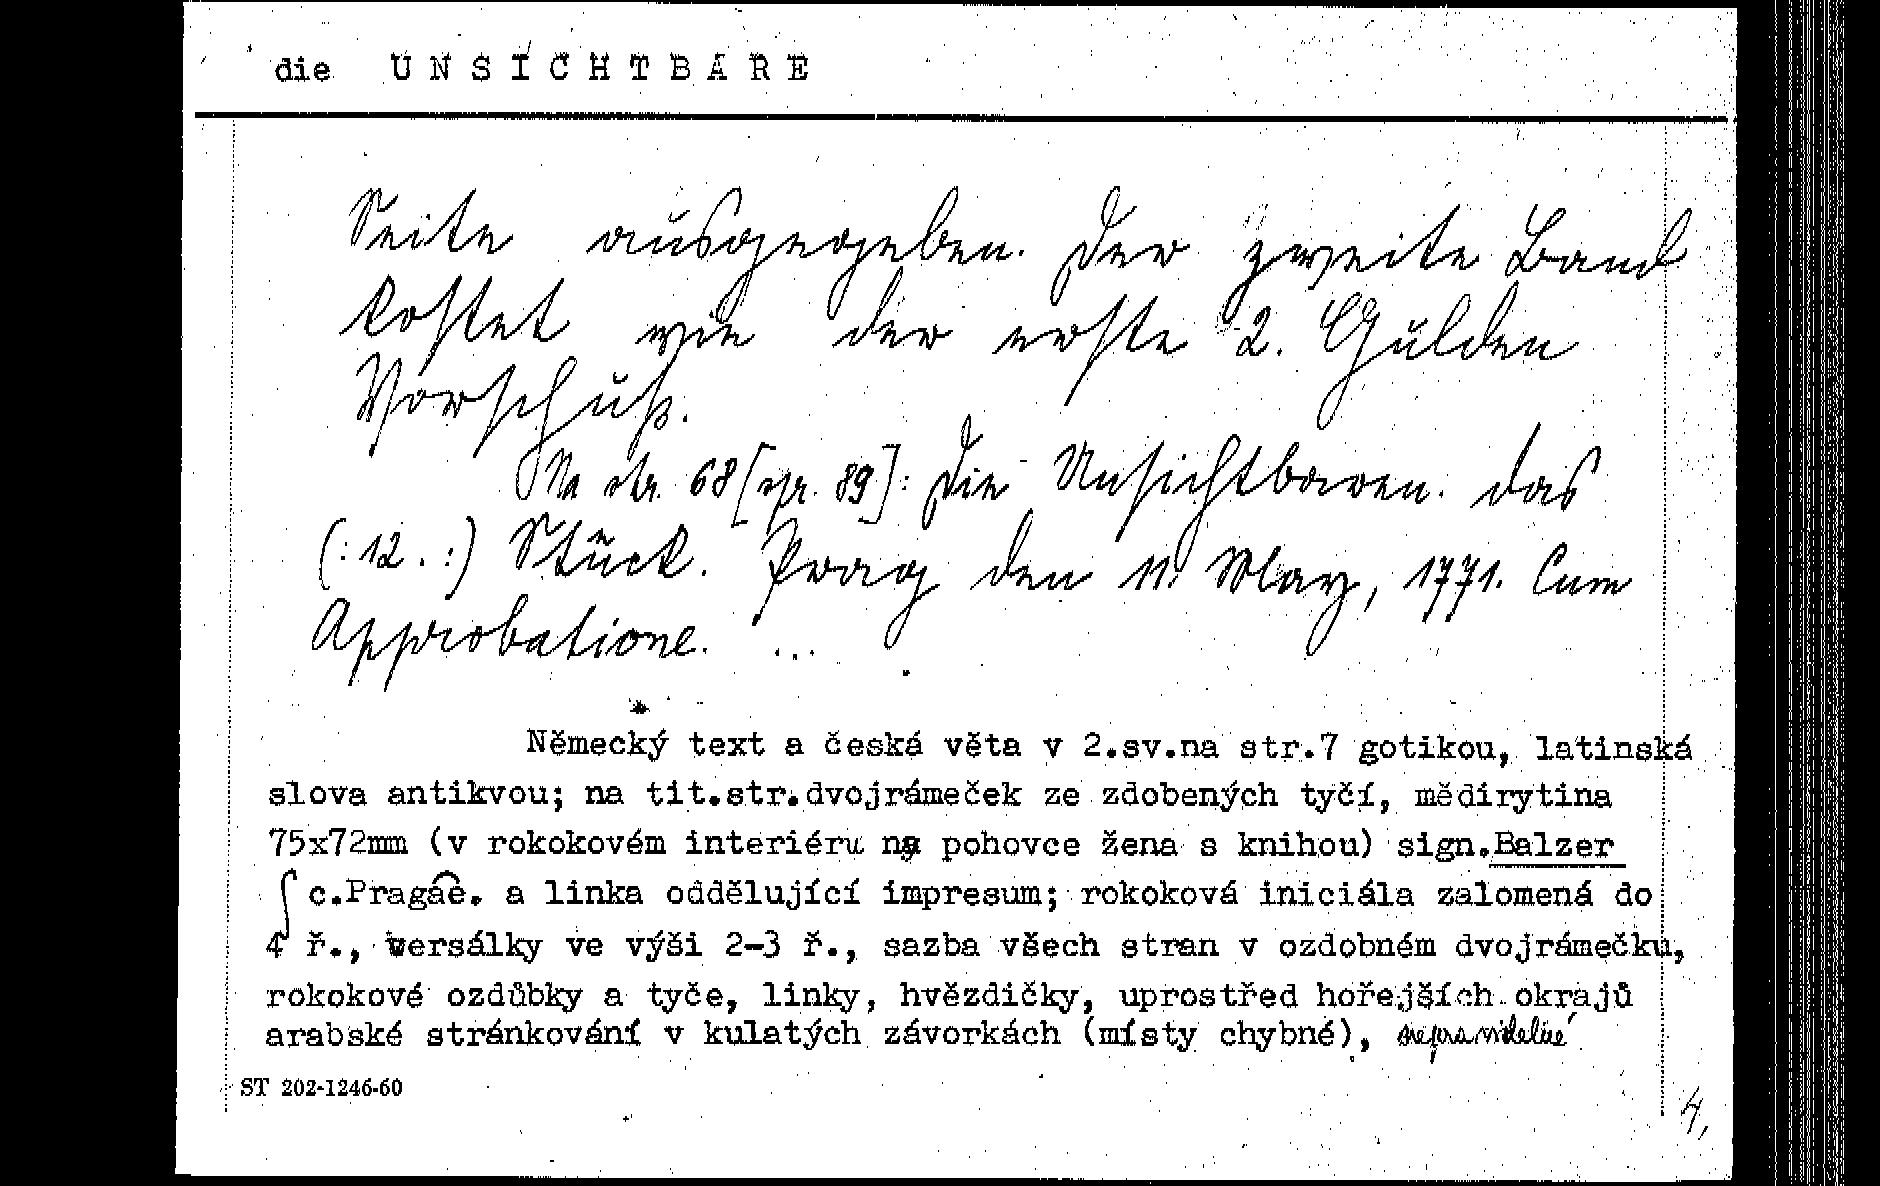 die U N S I C H T B A R E
Seite ausgegeben. Der zweite Band
kostet wie der erste 2. Gulden
Vorschuß.
Na str. 68 [spr. 89]: Die Unsichtbaren. das
(: 12. :) Stück. Prag den 11. May, 1771. Cum
Approbatione. ...
Německý text a česká věta v 2.sv.na str.7 gotikou, latinská
slova antikvou; na tit.str.dvojrámeček ze zdobených tyčí, mědirytina
75x72mm (v rokokovém interiéru na pohovce žena s knihou) sign.Balzer
∫ c.Pragae. a linka oddělující impresum; rokoková iniciála zalomená do
4 ř., versálky ve výši 2-3 ř., sazba všech stran v ozdobném dvojrámečku,
rokokové ozdůbky a tyče, linky, hvězdičky, uprostřed hořejších okrajů
arabské stránkování v kulatých závorkách (místy chybné), nepravidelné
ST 202-1246-60
4,